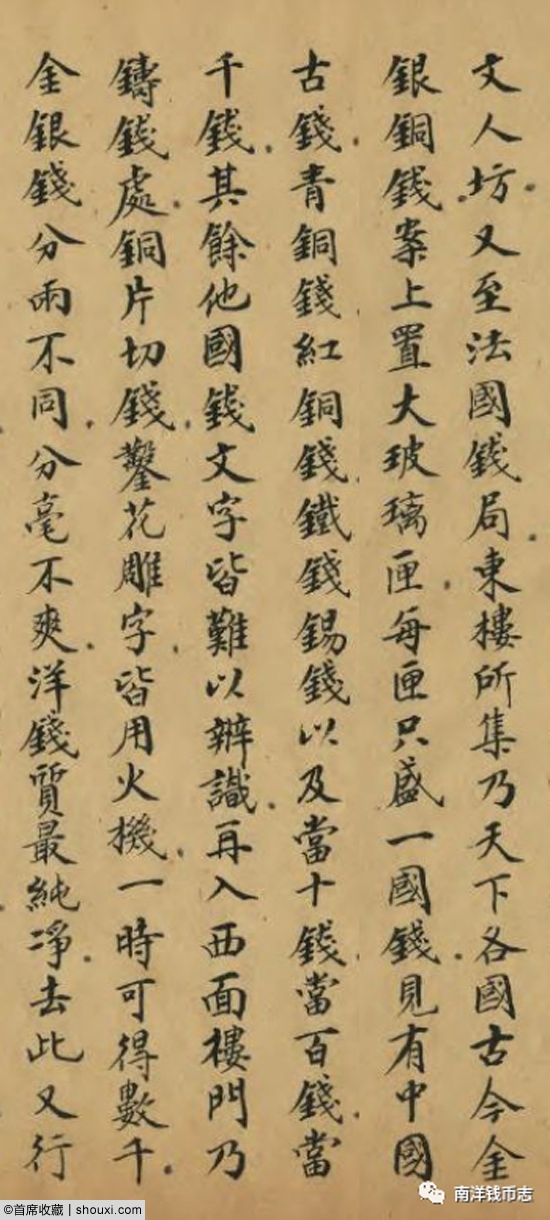 文人坊又至法國錢局東樓所集乃天下各國古今金
銀銅錢案上置大玻璃匣每匣只盛一國錢見有中國
古錢青銅錢紅銅錢鐵錢錫錢以及當十錢當百錢當
千錢其餘他國錢文字皆難以辨識再入西面樓門乃
鑄錢處銅片切錢鏨花雕字皆用火機一時可得數千
金銀錢分兩不同分毫不爽洋錢質最純凈去此又行
©首席收藏 | shouxi.com
南洋钱币志